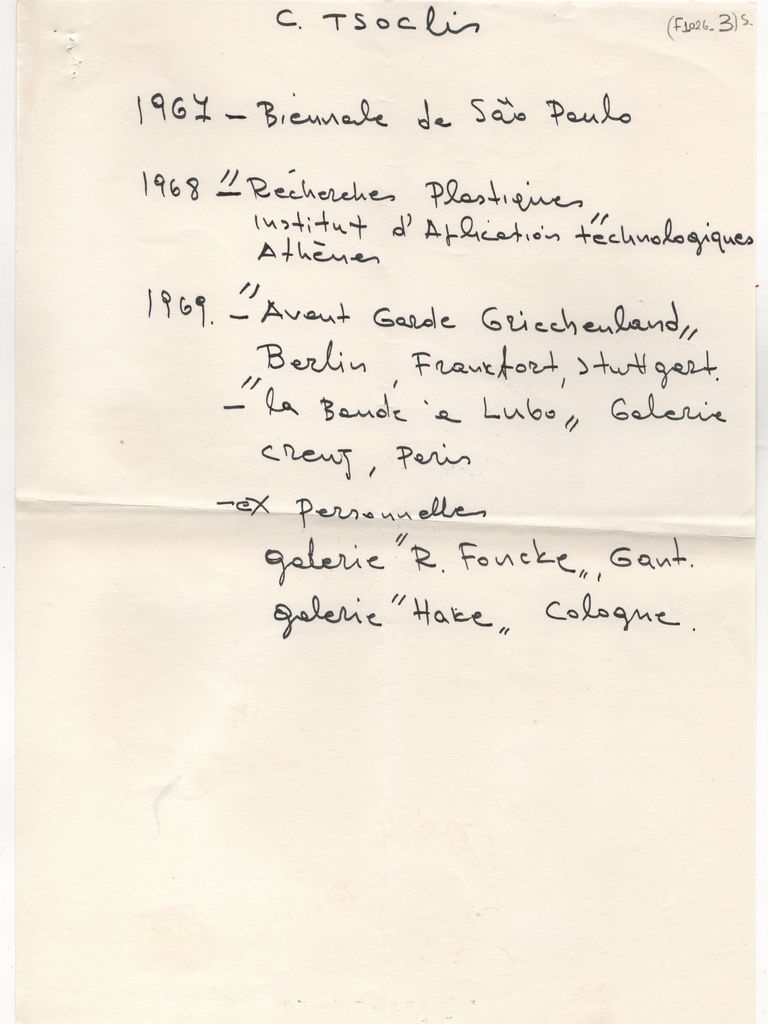 C. TSOCLIS
(F1026-3)S.
1967 - Biennale de São Paulo
1968 - "Récherches Plastiques"
Institut d'Aplication téchnologiques
Athènes
1969. - "Avant Garde Griechenland"
Berlin, Frankfort, Stuttgart.
- "la Bande à Lubo" Galerie
Creuz, Paris
- ex personnelles
galerie "R. Foncke", Gant.
galerie "Hake" Cologne.